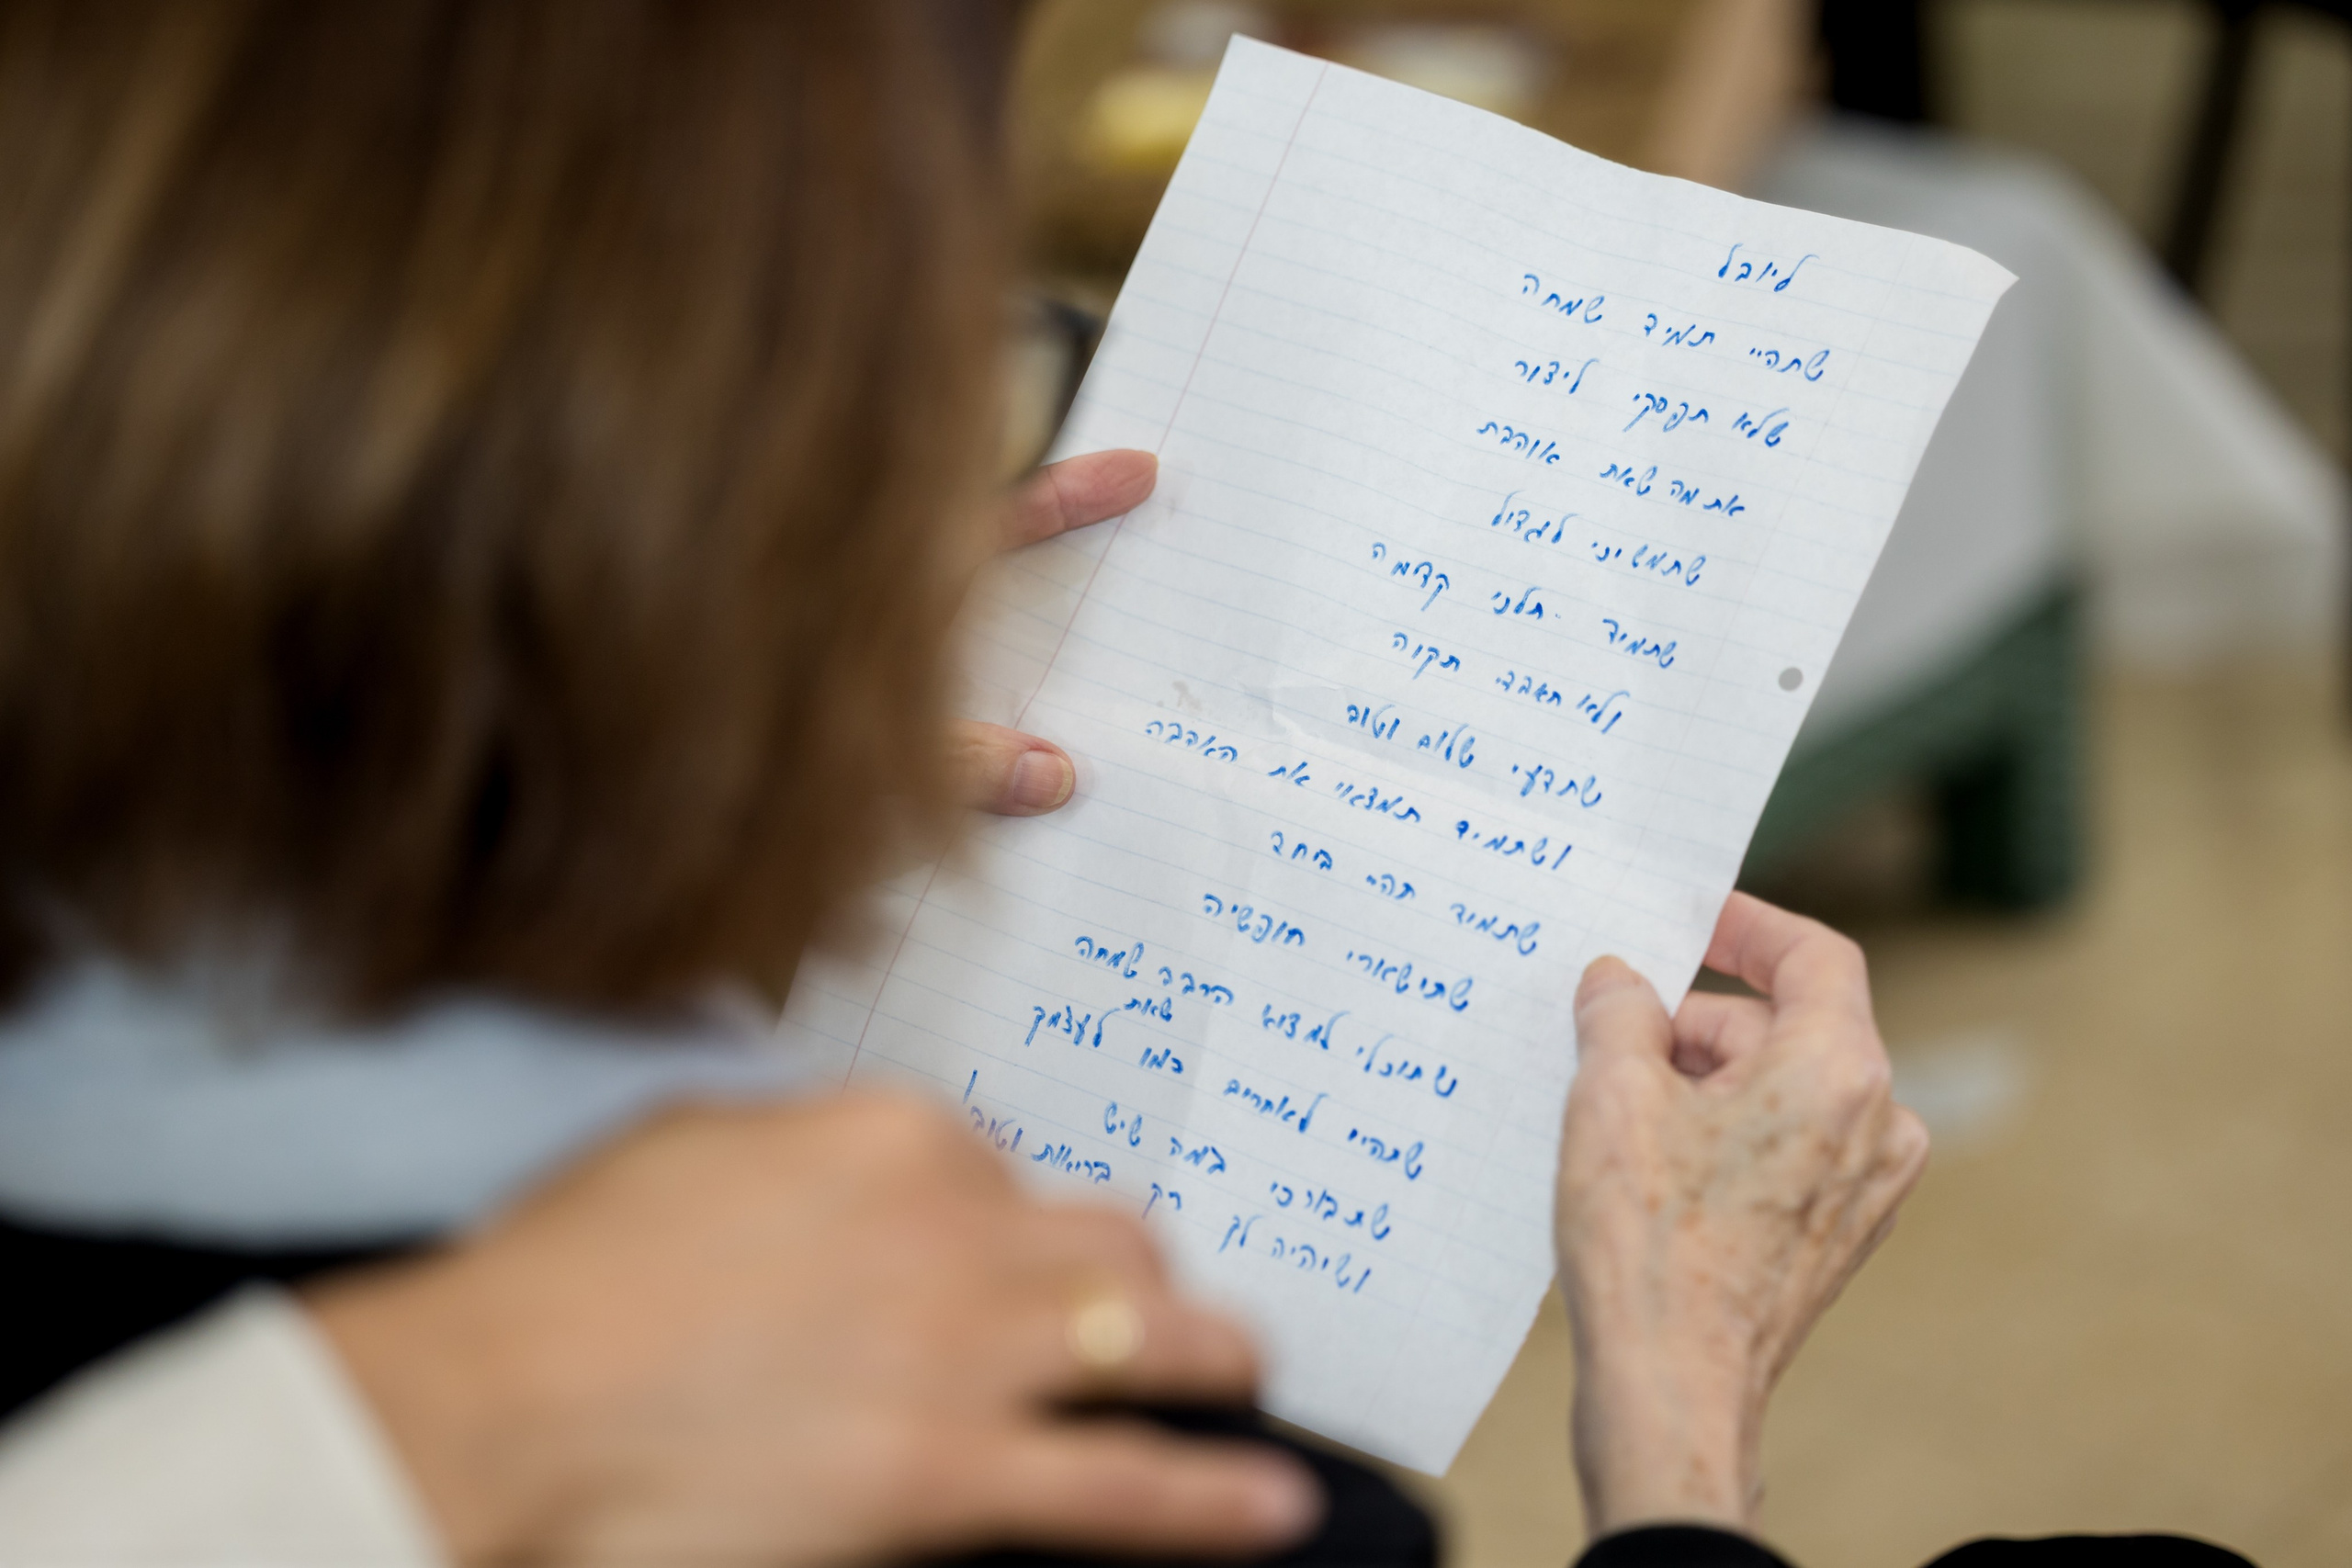 ליובל
שתהיי תמיד שמחה
שלא תפסקי ליצור
את מה שאת אוהבת
שתמשיכי לגדול
שתמיד תלכי קדימה
ולא תאבדי תקוה
שתדעי שלום וטוב
ושתמיד תמצאי את האהבה
שתמיד תהיי ביחד
שתישארי חופשיה
שתוכלי למצוא הרבה שמחה
שאת
שתהיי לאחרים כמו לעצמך
שתבורכי במה שיש
ושיהיה לך רק בריאות וטוב!